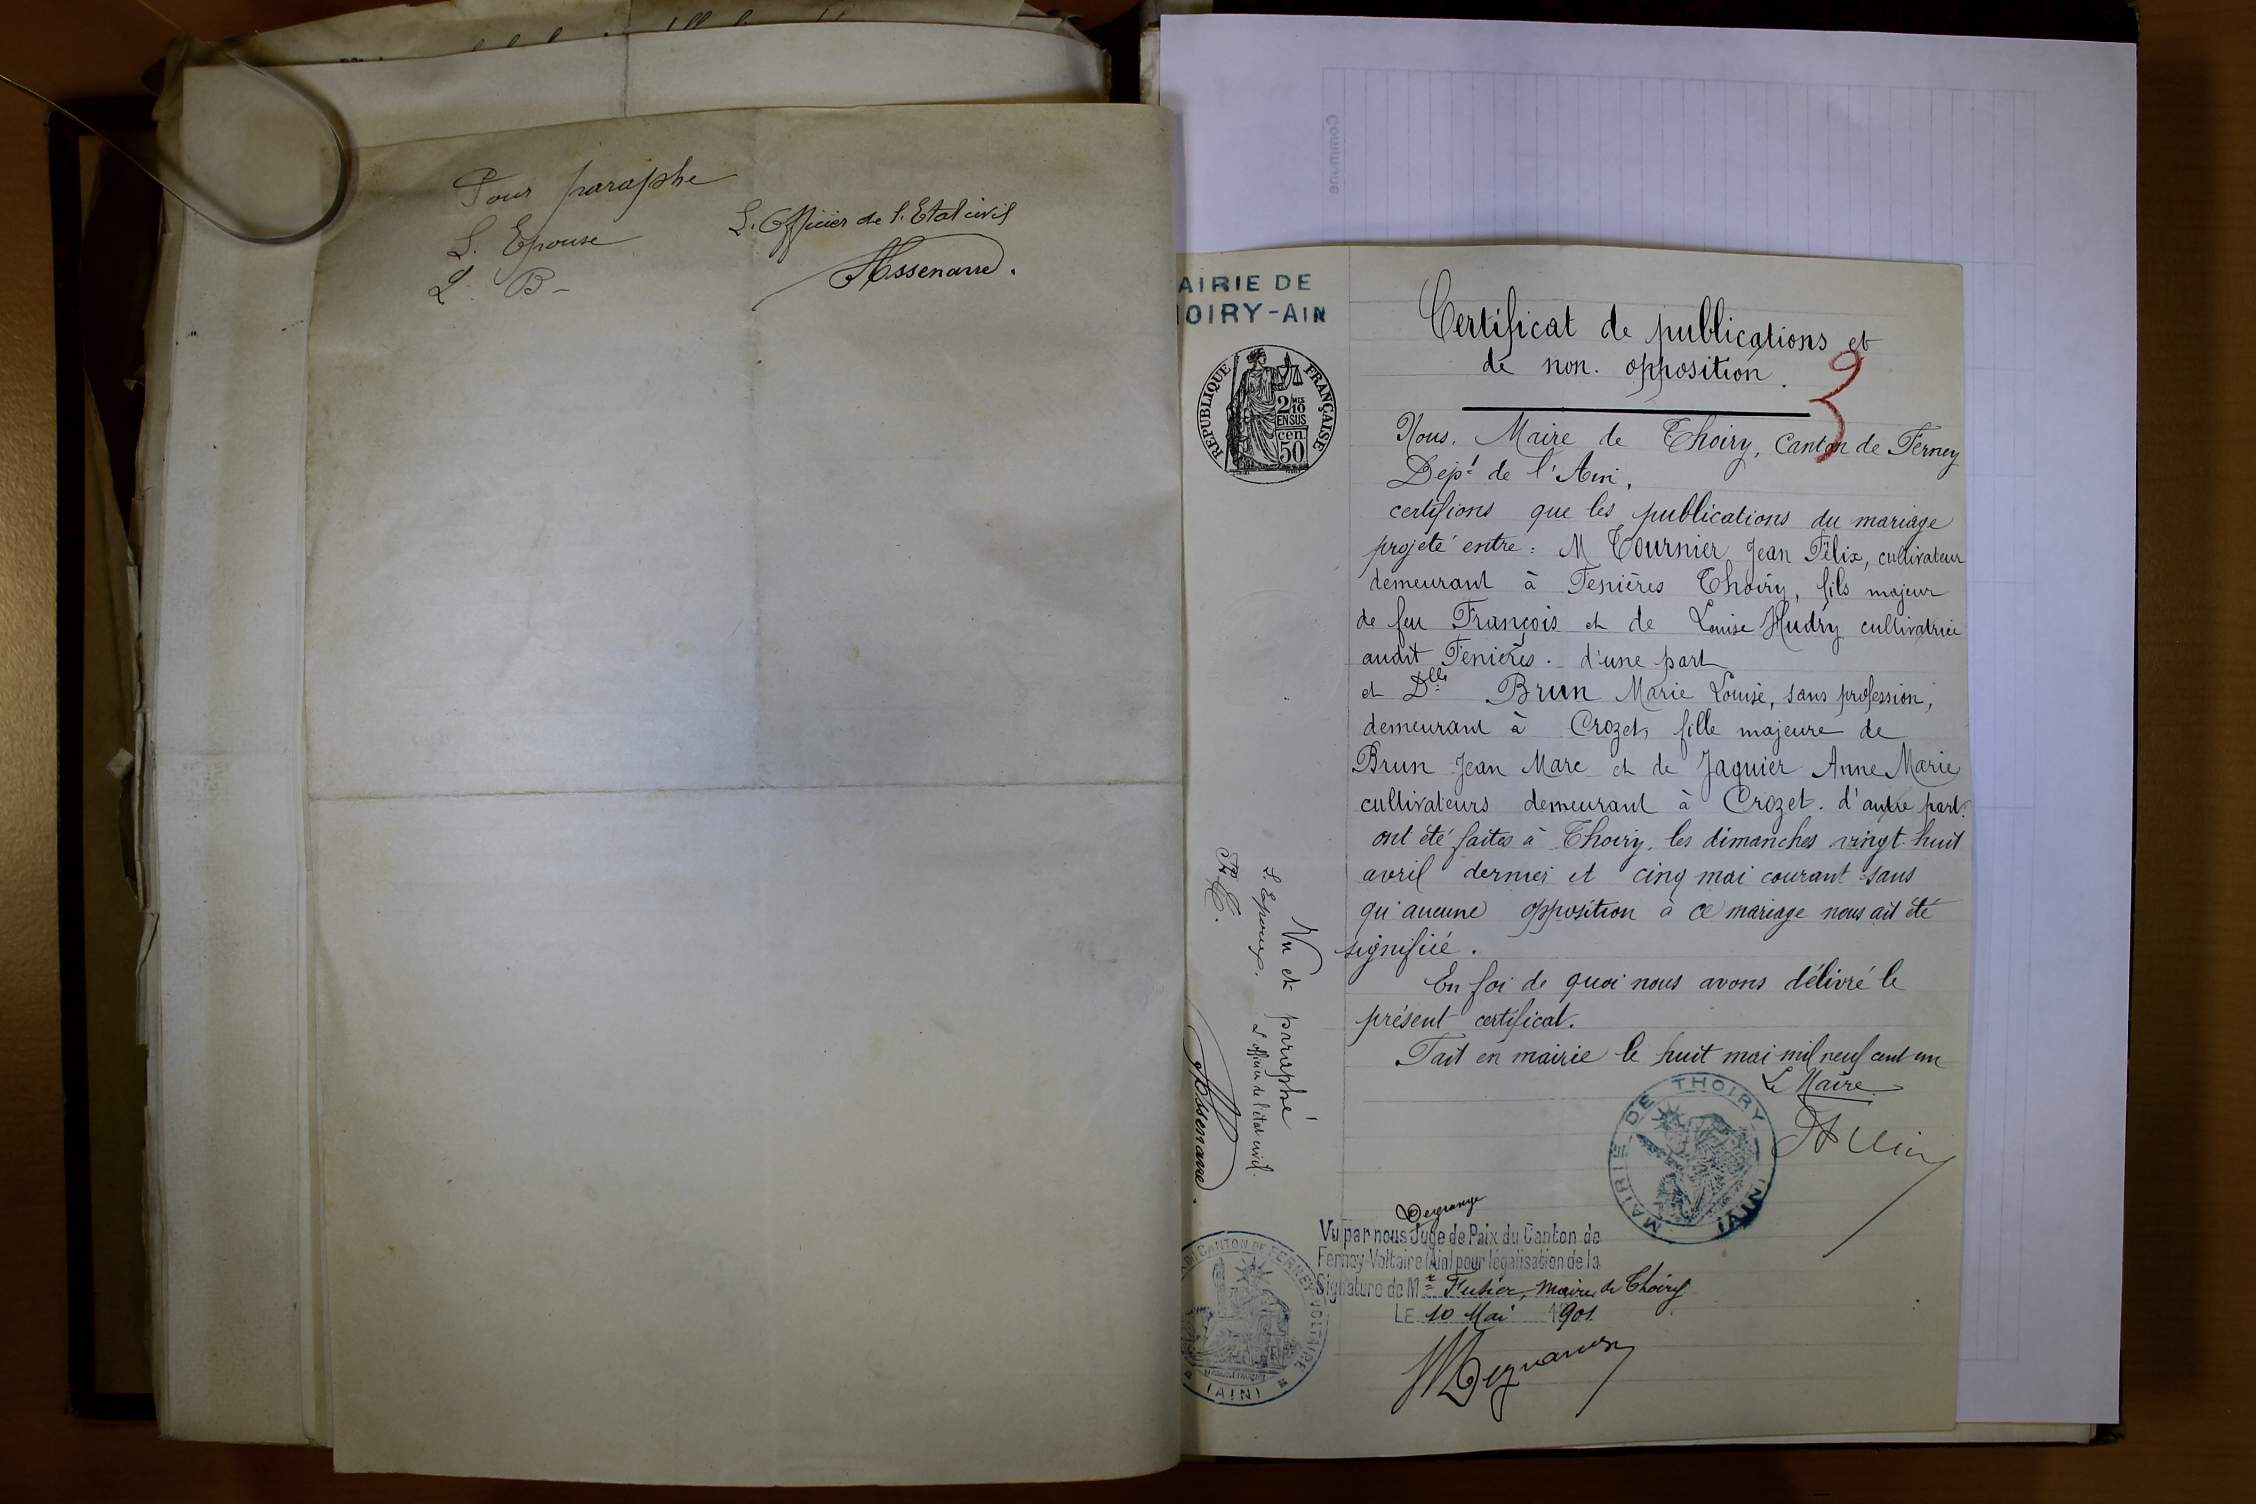 Pour paraphe
L. Epouse
L. B-
L. Officier de l. Etat civil
Assenarre.
AIRIE DE
OIRY-AIN
REPUBLIQUE FRANÇAISE
2/10 MES
EN SUS
cen.
50
Certificat de publications et
de non. opposition.
Nous. Maire de Thoiry, Canton de Ferney
Dept de l'Ain,
certifions que les publications du mariage
projeté entre: M Tournier Jean Félix, cultivateur
demeurant à Fenières Thoiry, fils majeur
de feu François et de Louise Hudry cultivatrice
audit Fenières. d'une part
et Dlle Brun Marie Louise, sans profession,
demeurant à Crozet, fille majeure de
Brun Jean Marc et de Jaquier Anne Marie
cultivateurs demeurant à Crozet. d'autre part.
ont été faites à Thoiry, les dimanches vingt-huit
avril dernier et cinq mai courant sans
qu'aucune opposition à ce mariage nous ait été
signifiée.
En foi de quoi nous avons délivré le
présent certificat.
Fait en mairie le huit mai mil neuf cent un
Le Maire
MAIRIE DE THOIRY (AIN)
Vu et paraphé
L. Epoux.
L'officier de l'état civil.
Assenarre.
Vu par nous Juge de Paix du Canton de
Ferney-Voltaire (Ain) pour légalisation de la
Signature de Mr Fusier, maire de Thoiry
LE 10 Mai 1901
DU CANTON DE FERNEY-VOLTAIRE
(AIN)
Commune